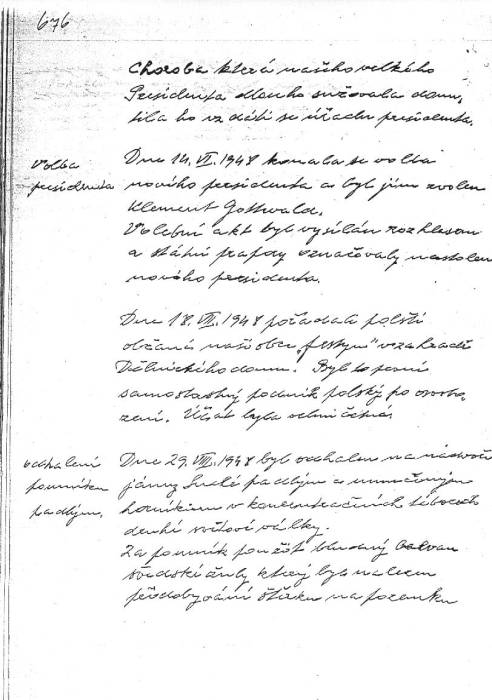 676
Choroba která našeho velkého
Presidenta dlouho sužovala donu-
tila ho vzdáti se úřadu presidenta.
Volba
presidenta
Dne 14. VI. 1948 konala se volba
nového presidenta a byl jím zvolen
Klement Gottwald.
Volební akt byl vysílán rozhlasem
a státní prapory označovaly nastolení
nového presidenta.
Dne 18. VII. 1948 pořádali polští
občané naší obce „festyn" v zahradě
Dělnického domu. Byl to první
samostatný podnik polský po osvobo-
zení. Účast byla velmi četná.
Odhalení
pomníku
padlým.
Dne 29. VIII. 1948 byl odhalen na nádvoří
jámy Suché padlým a umučeným
horníkům v koncentračních táborech
druhé světové války.
Za pomník použit bludný balvan
švédské žuly který byl nalezen
při dobývání štěrku na pozemku